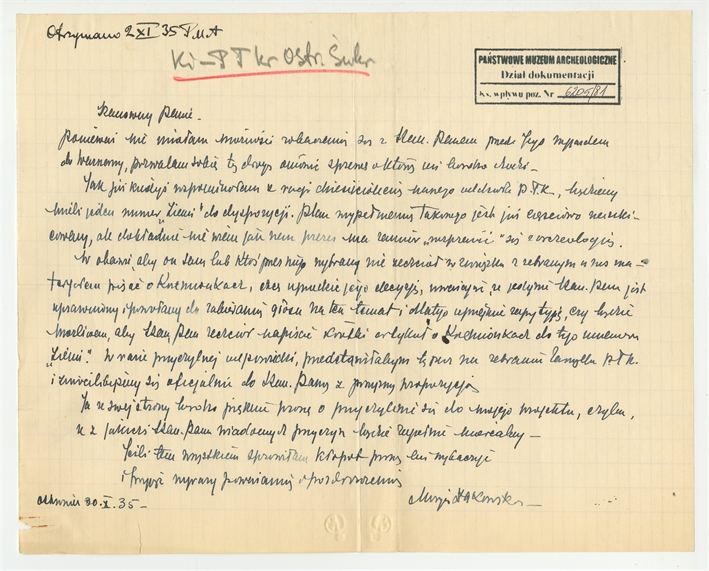 Otrzymano 2 XI 35 P.M.A
Ki-PTkr Ostr. Świkr
PAŃSTWOWE MUZEUM ARCHEOLOGICZNE
Dział dokumentacji
Ks. wpływu poz. Nr 6205/81
Szanowny Panie -
Ponieważ nie miałam możności zobaczenia się z Szan. Panem przed Jego wyjazdem
do Warszawy, pozwalam sobie tą drogą omówić sprawę o którą mi bardzo chodzi.
Jak już kiedyś wspominałam z racji dziesięciolecia naszego oddziału P.T.K. będziemy
mieli jeden numer "Ziemi" do dyspozycji. Plan wypełnienia takowego jest już częściowo
ale dokładnie nie wiem jak nasz prezes ma zamiar "rozprawić" się z archeologią.
W obawie, aby on sam lub ktoś przez niego wybrany nie zechciał w związku z zebranym u nas ma-
teriałem pisać o Krzemionkach, chcę uprzedzić jego decyzję, uważając że jedynie Szan. Pan jest
uprawniony i powołany do zabierania głosu na ten temat i dlatego uprzejmie zapytuję, czy będzie
możliwem, aby Szan. Pan zechciał napisać krótki artykuł o Krzemionkach do tego numeru
"Ziemi". W razie przychylnej odpowiedzi, przedstawiłabym tę na zebraniu Zarządu P.T.K.
i zwrócilibyśmy się oficjalnie do Szan. Pana z propozycją
Ja ze swej strony bardzo pięknie proszę o przychylenie się do mojego projektu, chyba,
że z jakichś Szan. Panu wiadomych przyczyn będzie zupełnie nierealny -
Jeśli tem wszystkiem sprawiłam kłopot proszę mi wybaczyć
i przyjąć wyrazy poważania i pozdrowienia
30.X.35 -